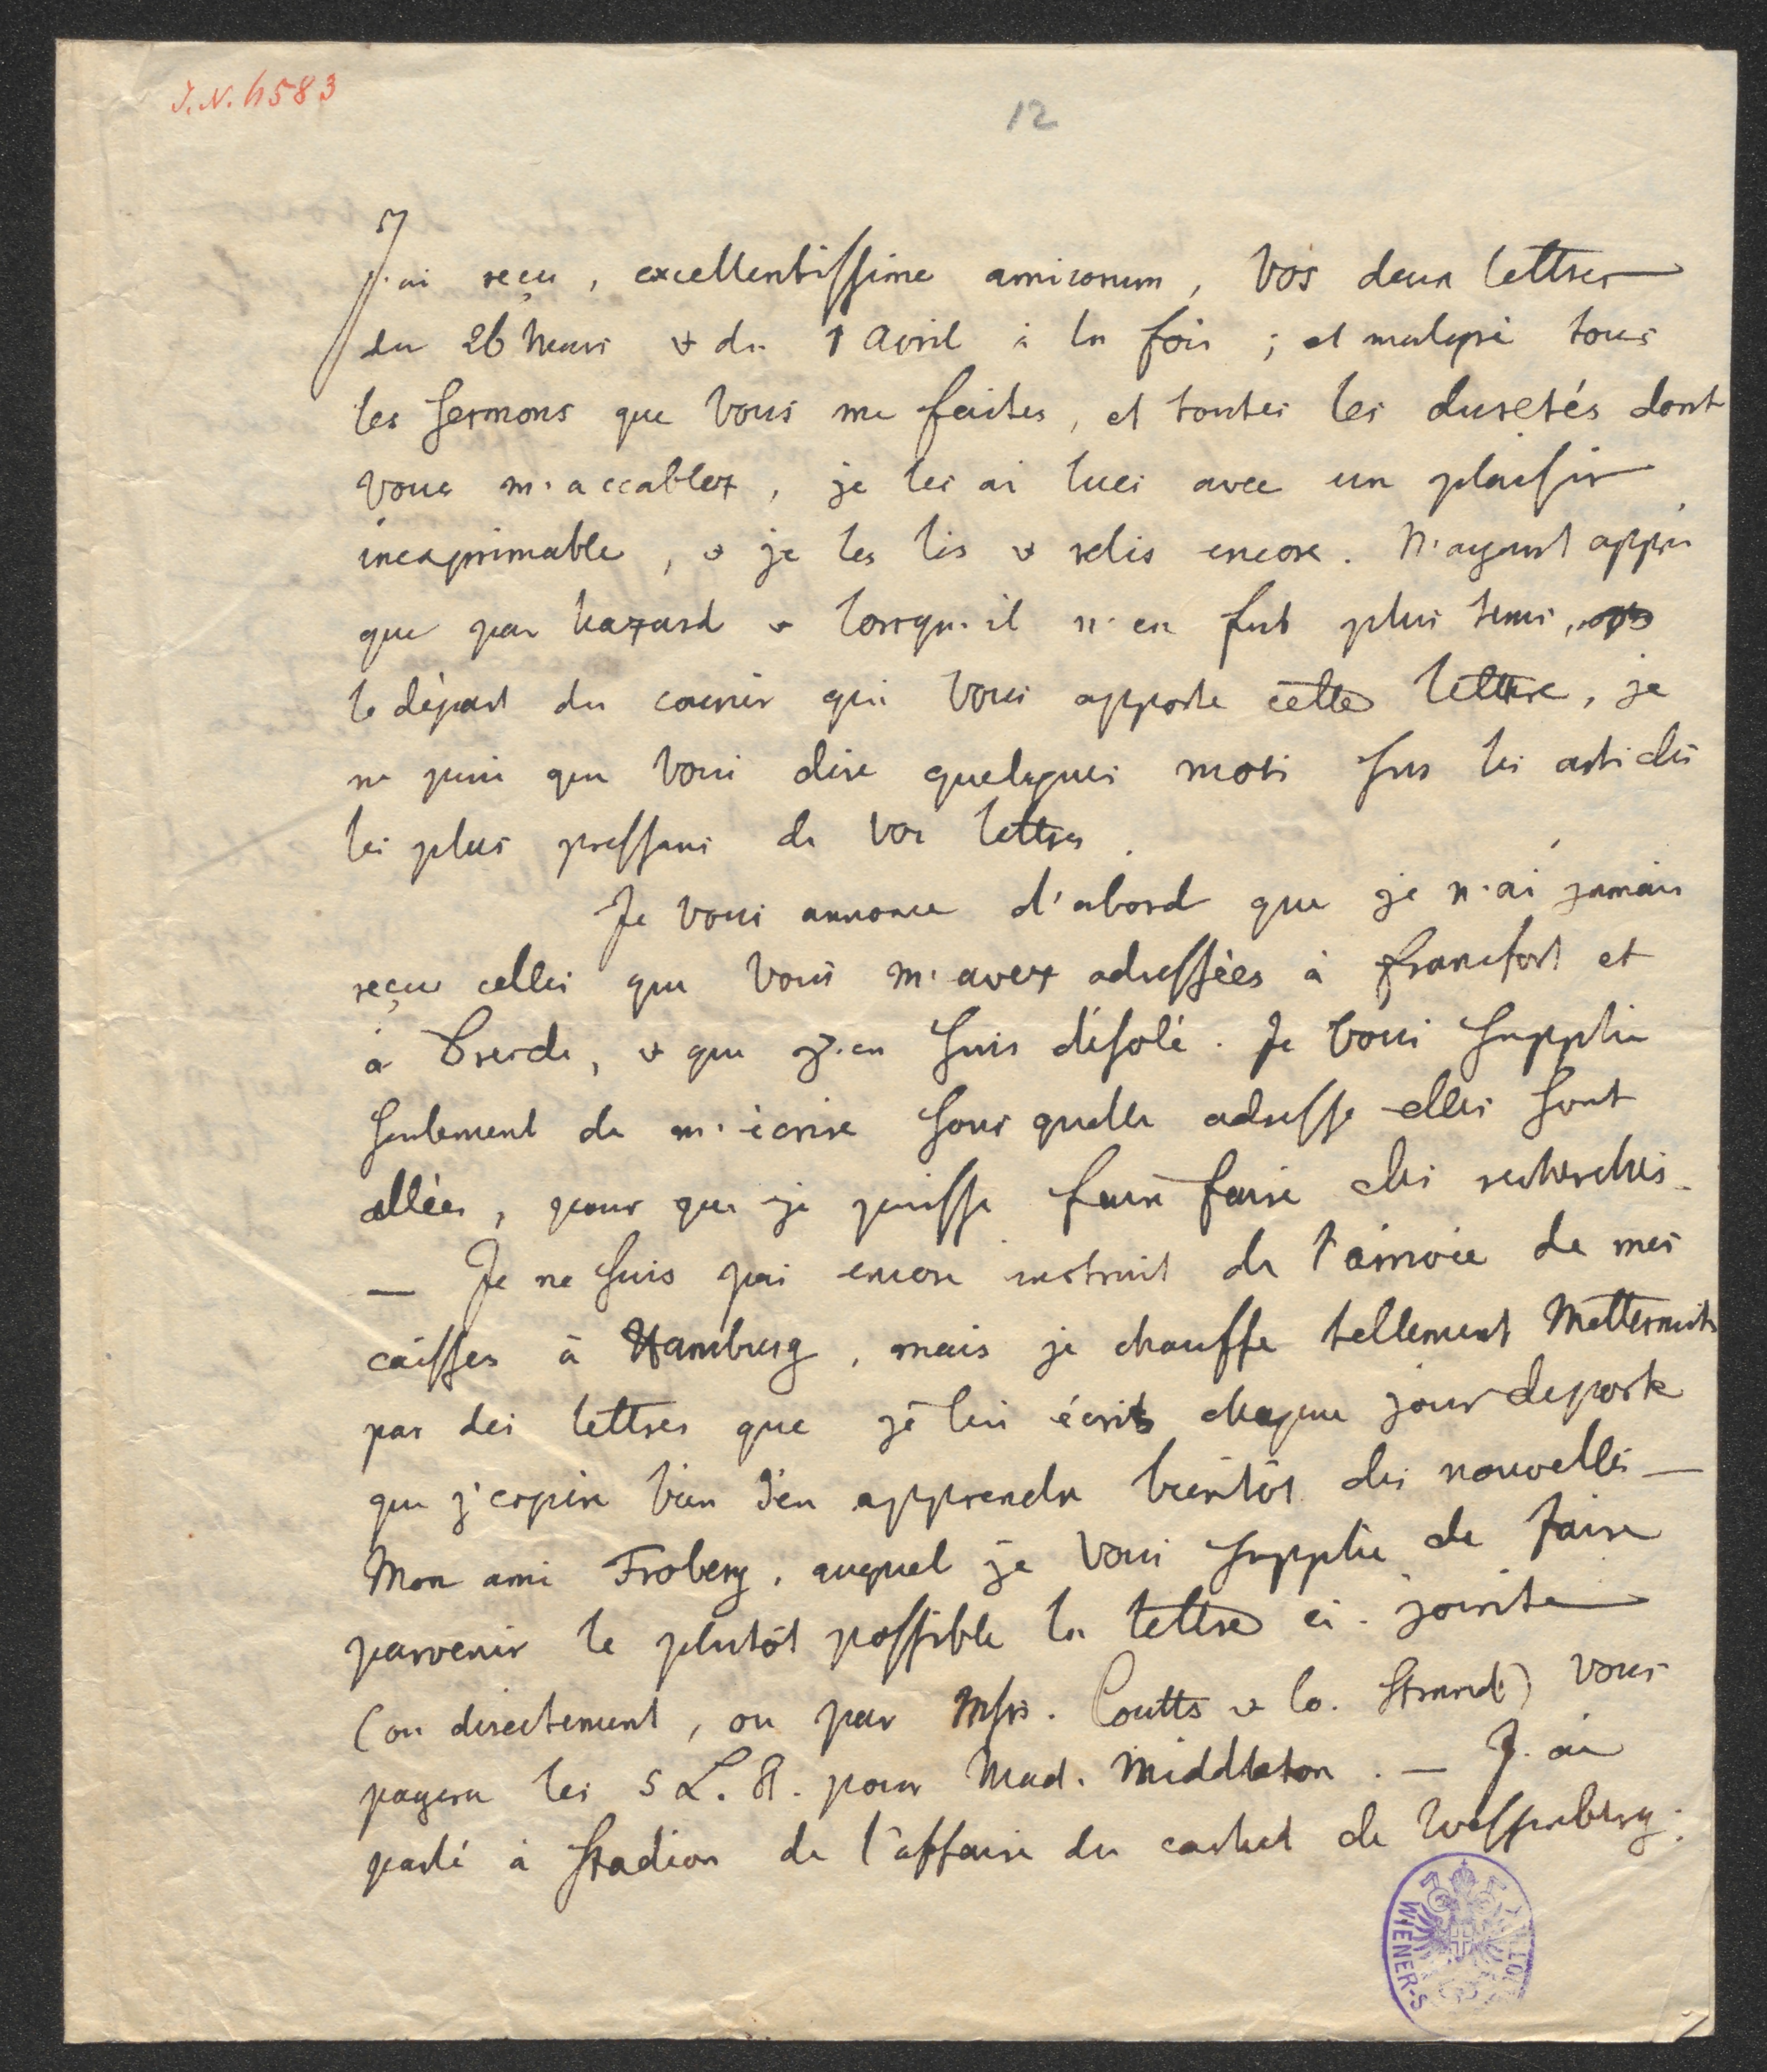 J.N. 4583
12
J'ai reçu, excellentissime amicorum, vos deux lettres
du 26 Mars & du 1 Avril à la fois ; et malgré tous
les sermons que vous me faites, et toutes les duretés dont
vous m'accablez, je les ai lues avec un plaisir
inexprimable, & je les lis & relis encore. N'ayant appris
que par hazard & lorsqu'il n'en fut plus tems,
le départ du courier qui vous apporte cette lettre, je
ne puis que vous dire quelques mots sur les articles
les plus pressans de vos lettres.
Je vous annonce d'abord que je n'ai jamais
reçu celles que vous m'avez adressées à Francfort et
à Dresde, & que j'en suis désolé. Je vous supplie
seulement de m'écrire sous quelle adresse elles sont
allées, pour que je puisse faire des recherches.
— Je ne suis pas encore instruit de l'arrivée de mes
caisses à Hamburg, mais je chauffe tellement Metternich
par des lettres que je lui écris chaque jour de poste
que j'espère bien d'en apprendre bientôt des nouvelles —
Mon ami Froberg, auquel je vous supplie de faire
parvenir le plutôt possible la lettre ci-jointe
(ou directement, ou par Mssrs. Coutts & Co. Strand) vous
payera les 5 L. St. pour Mad. Middleton. — J'ai
parlé à Stadion de l'affaire du cachet de Wessenberg;
WIENER-S